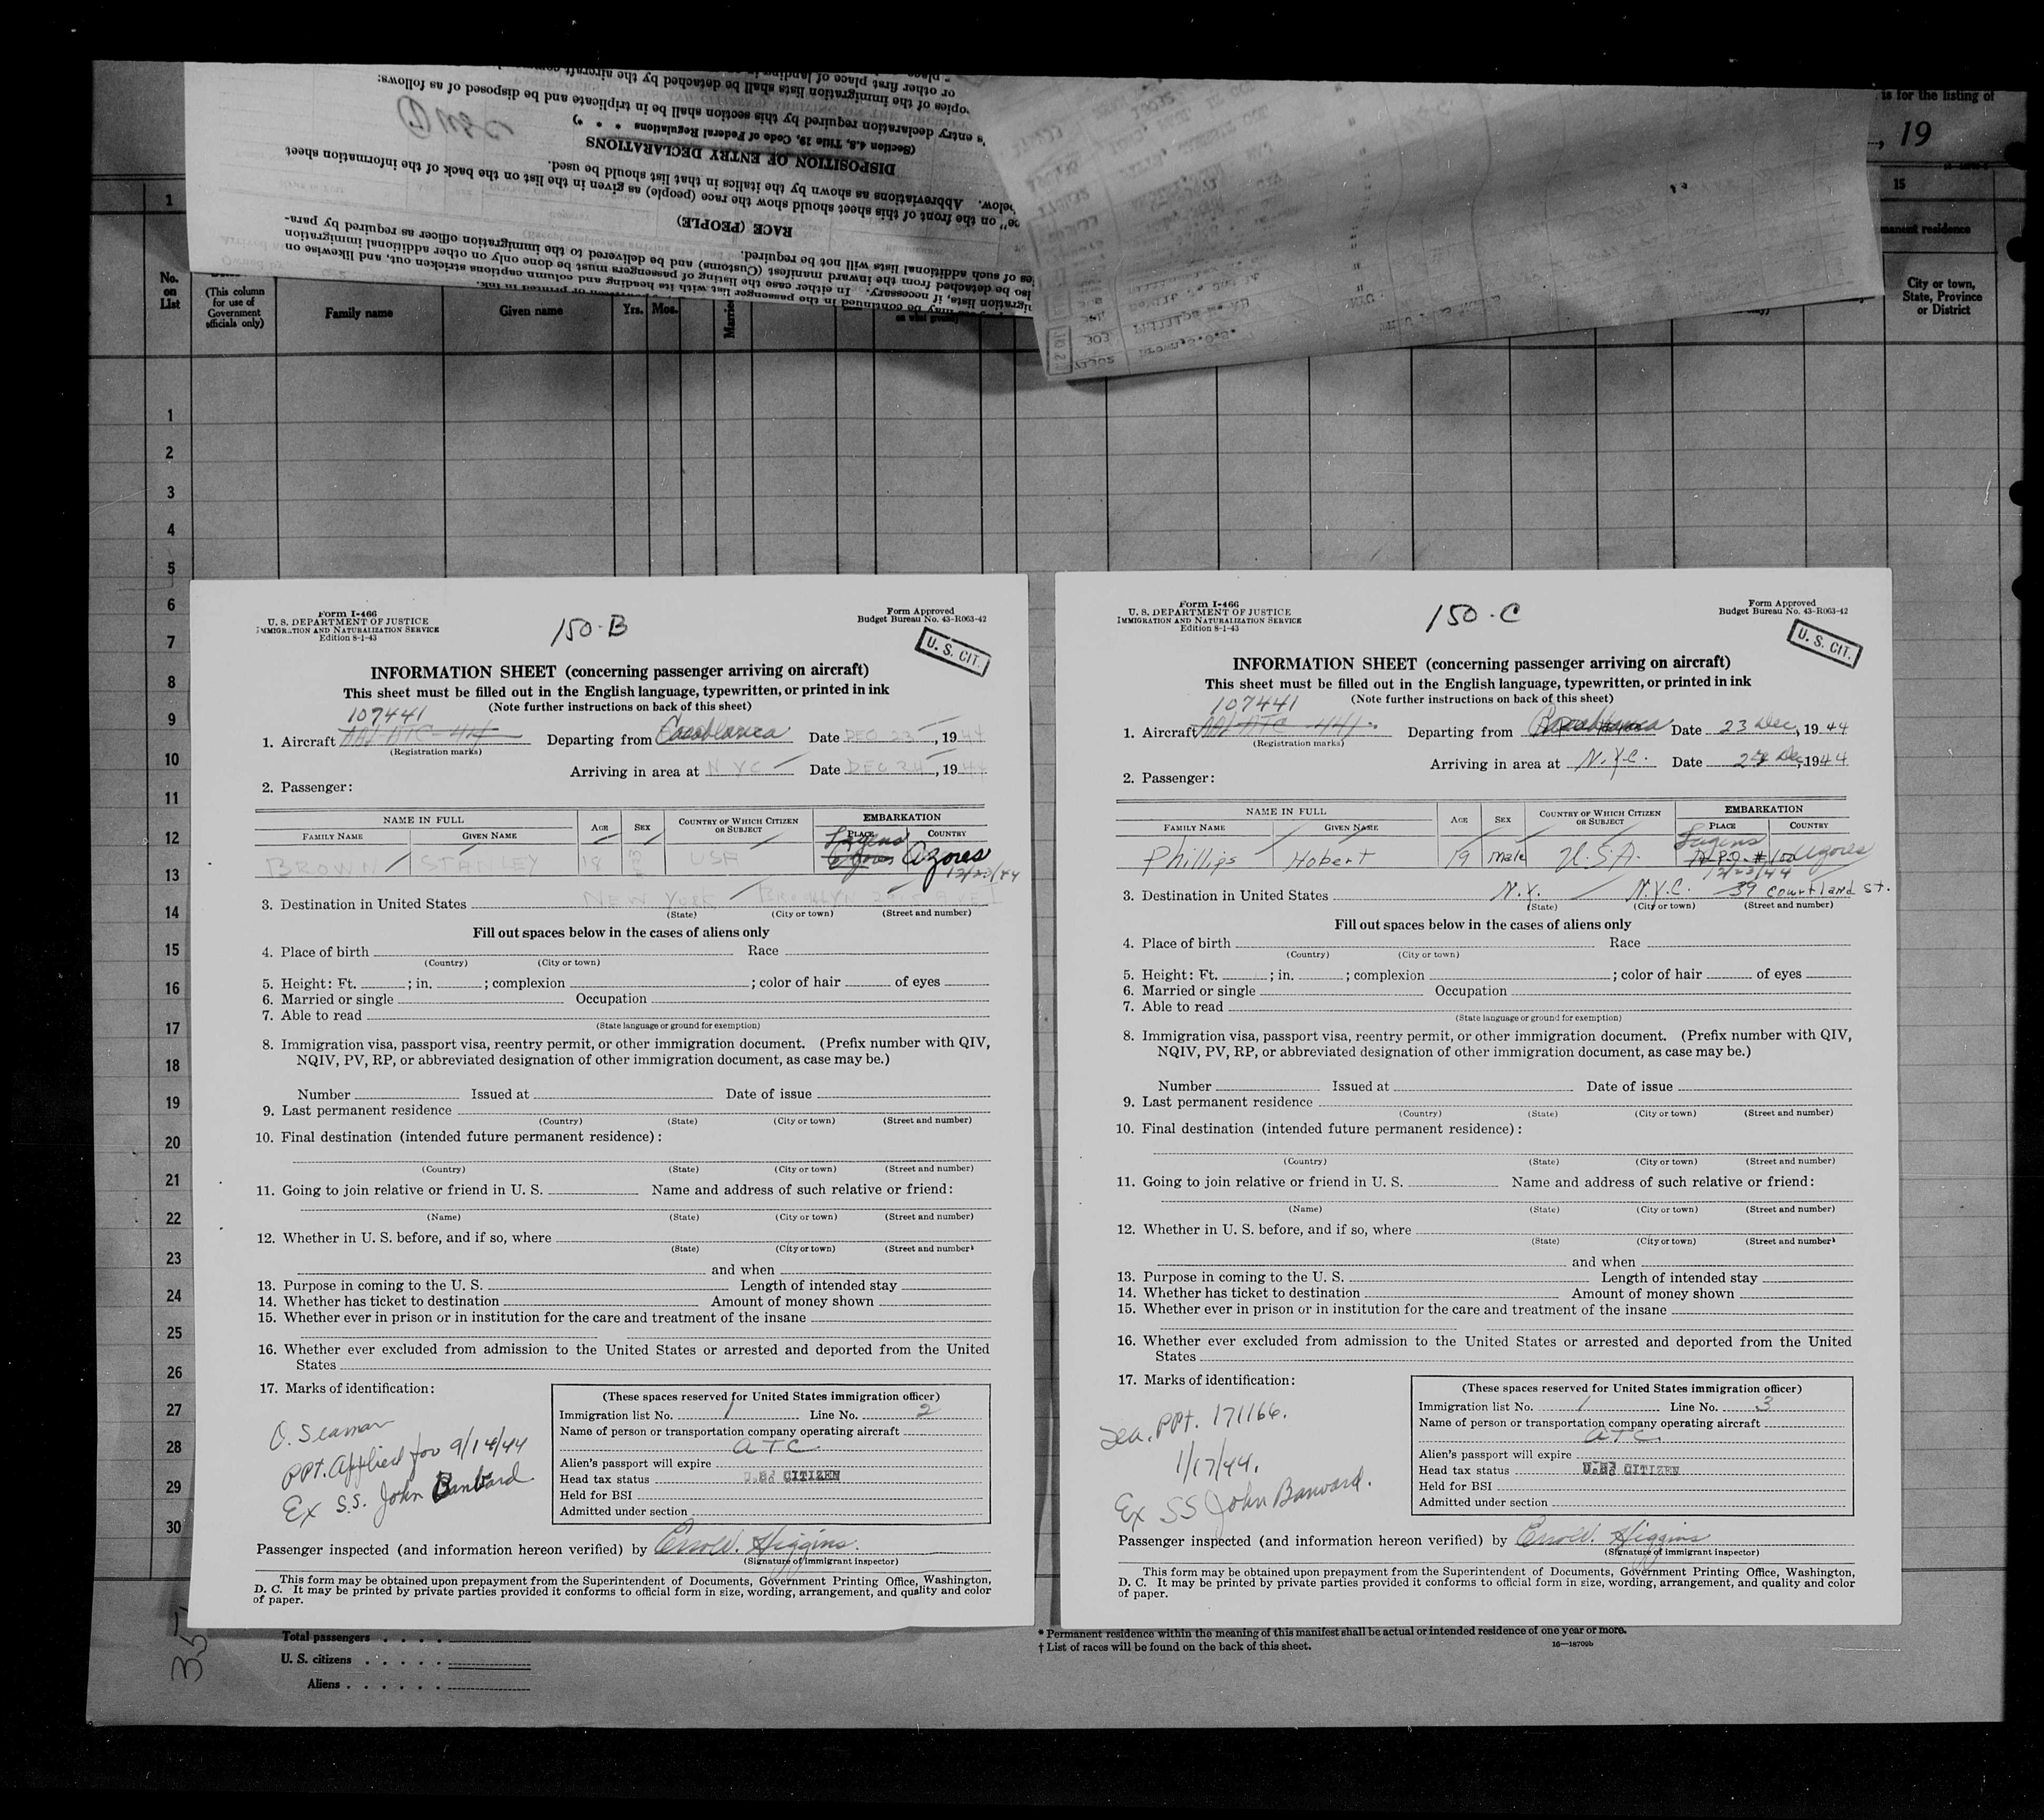 is for the listing of
, 19
" place
or other first place of landing in
copies of the immigration lists shall be detached by the aircraft
's entry declaration required by this section shall be in triplicate and be disposed of as follows:
(Section 4.8, Title 19, Code of Federal Regulations * * *)
DISPOSITION OF ENTRY DECLARATIONS
below. Abbreviations as shown by the italics in that list should be used.
on the front of this sheet should show the race (people) as given in the list on the back of the information sheet
RACE (PEOPLE)
of such additional lists will not be required.
be detached from the inward manifest (Customs) and be delivered to the immigration officer as required by para-
lists, if necessary. In either case the listing of passengers must be done only on other additional immigration
may be continued in the passenger list with its heading and column captions stricken out, and likewise on
or printed in ink.
1
15
permanent residence
No. on List
(This column for use of Government officials only)
Family name
Given name
Yrs. Mos.
Married
on what ground)
City or town, State, Province or District
1
2
3
4
5
6
7
8
9
10
11
12
13
14
15
16
17
18
19
20
21
22
23
24
25
26
27
28
29
30
Form I-466
U. S. DEPARTMENT OF JUSTICE
IMMIGRATION AND NATURALIZATION SERVICE
Edition 8-1-43
150-B
Form Approved
Budget Bureau No. 43-R063-42
U. S. CIT.
INFORMATION SHEET (concerning passenger arriving on aircraft)
This sheet must be filled out in the English language, typewritten, or printed in ink
(Note further instructions on back of this sheet)
107441
1. Aircraft AAF ATC-441 Departing from Casablanca Date DEC 23, 1944
(Registration marks)
Arriving in area at NYC Date DEC 24, 1944
2. Passenger:
NAME IN FULL
AGE
SEX
COUNTRY OF WHICH CITIZEN OR SUBJECT
EMBARKATION
FAMILY NAME
GIVEN NAME
PLACE
COUNTRY
Lagens
BROWN STANLEY 18 USA Azores
12/23/44
3. Destination in United States NEW YORK BROOKLYN
(State) (City or town) (Street and number)
Fill out spaces below in the cases of aliens only
4. Place of birth Race
(Country) (City or town)
5. Height: Ft. ; in. ; complexion ; color of hair of eyes
6. Married or single Occupation
7. Able to read
(State language or ground for exemption)
8. Immigration visa, passport visa, reentry permit, or other immigration document. (Prefix number with QIV,
NQIV, PV, RP, or abbreviated designation of other immigration document, as case may be.)
Number Issued at Date of issue
9. Last permanent residence
(Country) (State) (City or town) (Street and number)
10. Final destination (intended future permanent residence):
(Country) (State) (City or town) (Street and number)
11. Going to join relative or friend in U. S. Name and address of such relative or friend:
(Name) (State) (City or town) (Street and number)
12. Whether in U. S. before, and if so, where
(State) (City or town) (Street and number)
and when
13. Purpose in coming to the U. S. Length of intended stay
14. Whether has ticket to destination Amount of money shown
15. Whether ever in prison or in institution for the care and treatment of the insane
16. Whether ever excluded from admission to the United States or arrested and deported from the United
States
17. Marks of identification:
O. Seaman
PPt. Applied for 9/14/44
Ex S.S. John Banvard
(These spaces reserved for United States immigration officer)
Immigration list No. 1 Line No. 2
Name of person or transportation company operating aircraft
ATC
Alien's passport will expire
Head tax status U.S. CITIZEN
Held for BSI
Admitted under section
Passenger inspected (and information hereon verified) by Errol W. Higgins
(Signature of immigrant inspector)
This form may be obtained upon prepayment from the Superintendent of Documents, Government Printing Office, Washington,
D. C. It may be printed by private parties provided it conforms to official form in size, wording, arrangement, and quality and color
of paper.
Form I-466
U. S. DEPARTMENT OF JUSTICE
IMMIGRATION AND NATURALIZATION SERVICE
Edition 8-1-43
150-C
Form Approved
Budget Bureau No. 43-R063-42
U. S. CIT.
INFORMATION SHEET (concerning passenger arriving on aircraft)
This sheet must be filled out in the English language, typewritten, or printed in ink
(Note further instructions on back of this sheet)
107441
1. Aircraft AAF ATC-441 Departing from Casablanca Date 23 Dec, 1944
(Registration marks)
Arriving in area at N.Y.C. Date 24 Dec, 1944
2. Passenger:
NAME IN FULL
AGE
SEX
COUNTRY OF WHICH CITIZEN OR SUBJECT
EMBARKATION
FAMILY NAME
GIVEN NAME
PLACE
COUNTRY
Lagens
Phillips Hobert 19 Male U.S.A. A.P.O. #100 Azores
12/23/44
3. Destination in United States N.Y. N.Y.C. 39 Courtland St.
(State) (City or town) (Street and number)
Fill out spaces below in the cases of aliens only
4. Place of birth Race
(Country) (City or town)
5. Height: Ft. ; in. ; complexion ; color of hair of eyes
6. Married or single Occupation
7. Able to read
(State language or ground for exemption)
8. Immigration visa, passport visa, reentry permit, or other immigration document. (Prefix number with QIV,
NQIV, PV, RP, or abbreviated designation of other immigration document, as case may be.)
Number Issued at Date of issue
9. Last permanent residence
(Country) (State) (City or town) (Street and number)
10. Final destination (intended future permanent residence):
(Country) (State) (City or town) (Street and number)
11. Going to join relative or friend in U. S. Name and address of such relative or friend:
(Name) (State) (City or town) (Street and number)
12. Whether in U. S. before, and if so, where
(State) (City or town) (Street and number)
and when
13. Purpose in coming to the U. S. Length of intended stay
14. Whether has ticket to destination Amount of money shown
15. Whether ever in prison or in institution for the care and treatment of the insane
16. Whether ever excluded from admission to the United States or arrested and deported from the United
States
17. Marks of identification:
Sea. PPt. 171166.
1/17/44.
Ex SS John Banvard.
(These spaces reserved for United States immigration officer)
Immigration list No. 1 Line No. 3
Name of person or transportation company operating aircraft
ATC.
Alien's passport will expire
Head tax status U.S. CITIZEN
Held for BSI
Admitted under section
Passenger inspected (and information hereon verified) by Errol W. Higgins
(Signature of immigrant inspector)
This form may be obtained upon prepayment from the Superintendent of Documents, Government Printing Office, Washington,
D. C. It may be printed by private parties provided it conforms to official form in size, wording, arrangement, and quality and color
of paper.
35
Total passengers
U. S. citizens
Aliens
* Permanent residence within the meaning of this manifest shall be actual or intended residence of one year or more.
† List of races will be found on the back of this sheet.
16—18709b